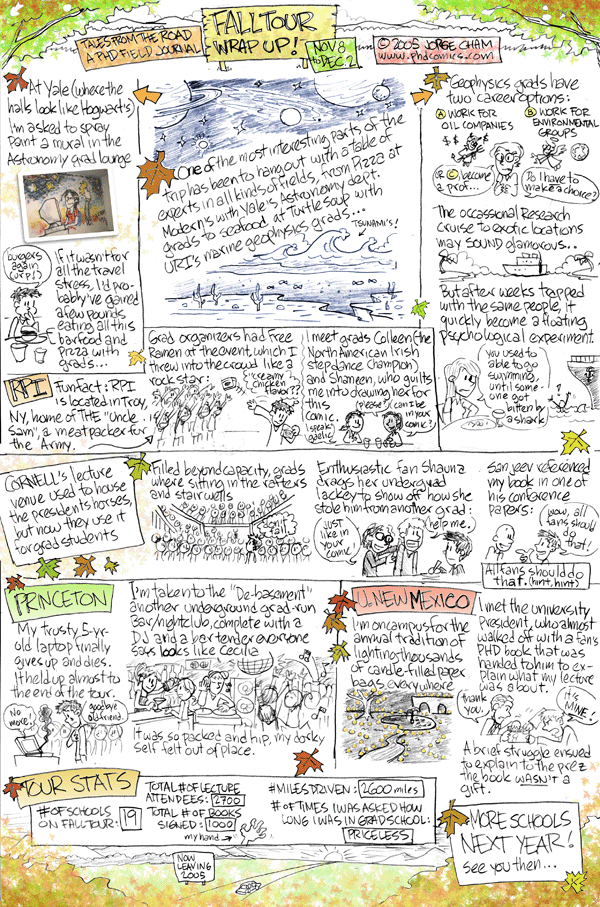 TALES FROM THE ROAD
A PHD FIELD JOURNAL
FALL TOUR
WRAP UP!
NOV 8
TO DEC 2
© 2005 JORGE CHAM
www.phdcomics.com
At Yale (where the
halls look like Hogwarts)
I'm asked to spray
Paint a mural in the
Astronomy grad lounge
burgers
again
(urp)
If it wasn't for
all the travel
stress, I'd pro-
bably've gained
a few pounds
eating all this
bar food and
pizza with
grads...
One of the most interesting parts of the
trip has been to hang out with a table of
experts in all kinds of fields, from Pizza at
Modern's with Yale's Astronomy dept.
grads to seafood at Turtle soup with
URI's marine geophysics grads...
TSUNAMI'S!
Geophysics grads have
two career options:
A WORK FOR
OIL COMPANIES
$ $
$
B WORK FOR
ENVIRONMENTAL
GROUPS
OR C become
a prof...
Do I have to
make a choice?
The occassional Research
cruise to exotic locations
may SOUND glamorous...
But after weeks trapped
with the same people, it
quickly become a floating
psychological experiment
you used to
able to go
swimming,
until some-
one got
bitten by
a shark
RPI
Funfact: RPI
is located in Troy,
NY, home of THE "Uncle
Sam", a meat packer for
the Army.
Grad organizers had Free
Ramen at the event, which I
threw into the crowd like a
rock star:
"creamy
chicken
flavor"??
I meet grads Colleen (the
North American Irish
stepdance Champion)
and Shaneen, who guilts
me into drawing her for
this
comic.
I speak
gaelic
please!
I can be
in your
comic?
CORNELL's lecture
venue used to house
the presidents horses,
but now they use it
for grad students
Filled beyond capacity, grads
where sitting in the rafters
and stairwells
don't
fall
Enthusiastic fan Shauna
drags her undergrad
lackey to show off how she
stole him from another grad:
just like
in your
comic!
help me.
Sanjeev referenced
my book in one of
his conference
papers:
wow, all
fans should
do that!
All fans should do
that. (hint, hint)
PRINCETON
My trusty 5-yr-
old laptop finally
gives up and dies.
It held up almost to
the end of the tour.
No
more!
goodbye
old friend.
I'm taken to the "De-basement"
another underground grad-run
Bar/nightclub, complete with a
DJ and a bartender everyone
says looks like Cecilia
It was so packed and hip, my dorky
self felt out of place.
U. NEW MEXICO
I'm on campus for the
annual tradition of
lighting thousands
of candle-filled paper
bags everywhere
I met the university
President, who almost
walked off with a fans
PHD book that was
handed to him to ex-
plain what my lecture
was about.
thank
you.
it's
MINE!
A brief struggle ensued
to explain to the prez
the book WASN'T a
gift.
TOUR STATS
#OF SCHOOLS
ON FALL TOUR: 19
TOTAL # OF LECTURE
ATTENDEES: 2700
TOTAL # OF BOOKS
SIGNED: 1000
my hand
#MILES DRIVEN: 2600 miles
# OF TIMES I WAS ASKED HOW
LONG I WAS IN GRAD SCHOOL:
PRICELESS
NOW
LEAVING
2005
MORE SCHOOLS
NEXT YEAR!
see you then...